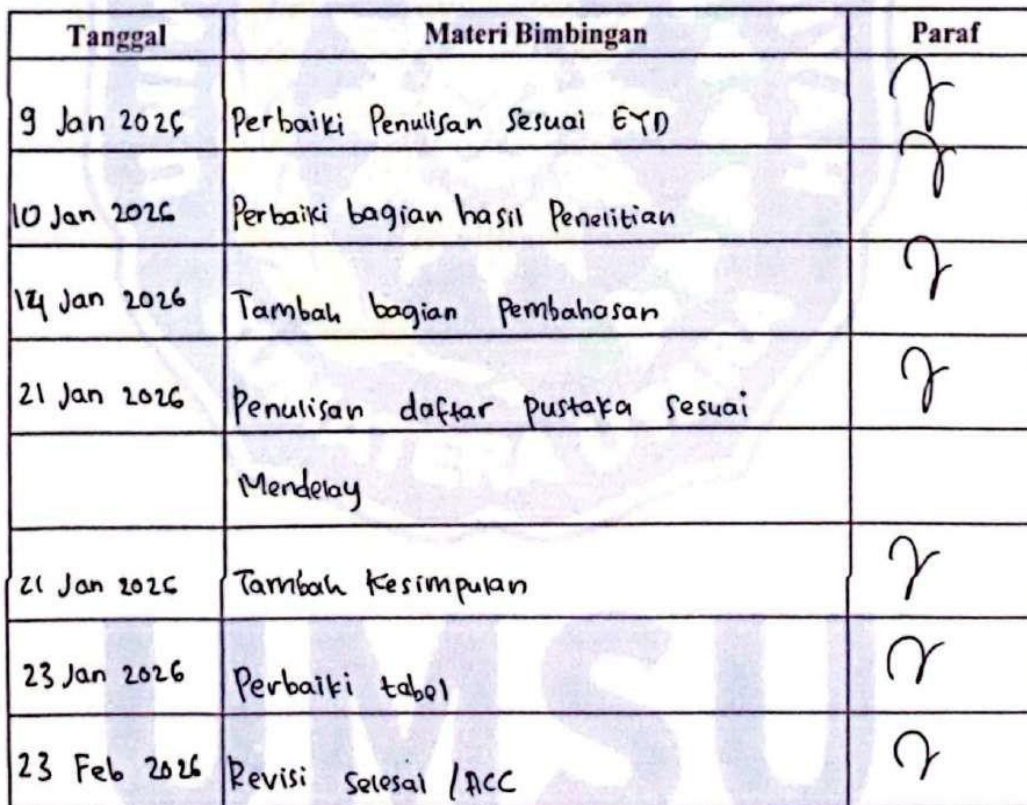 Tanggal Materi Bimbingan Paraf
9 Jan 2026 Perbaiki Penulisan Sesuai EYD
10 Jan 2026 Perbaiki bagian hasil Penelitian
14 Jan 2026 Tambah bagian Pembahasan
21 Jan 2026 Penulisan daftar pustaka sesuai
Mendelay
21 Jan 2026 Tambah Kesimpulan
23 Jan 2026 Perbaiki tabel
23 Feb 2026 Revisi Selesai / ACC
UMSU